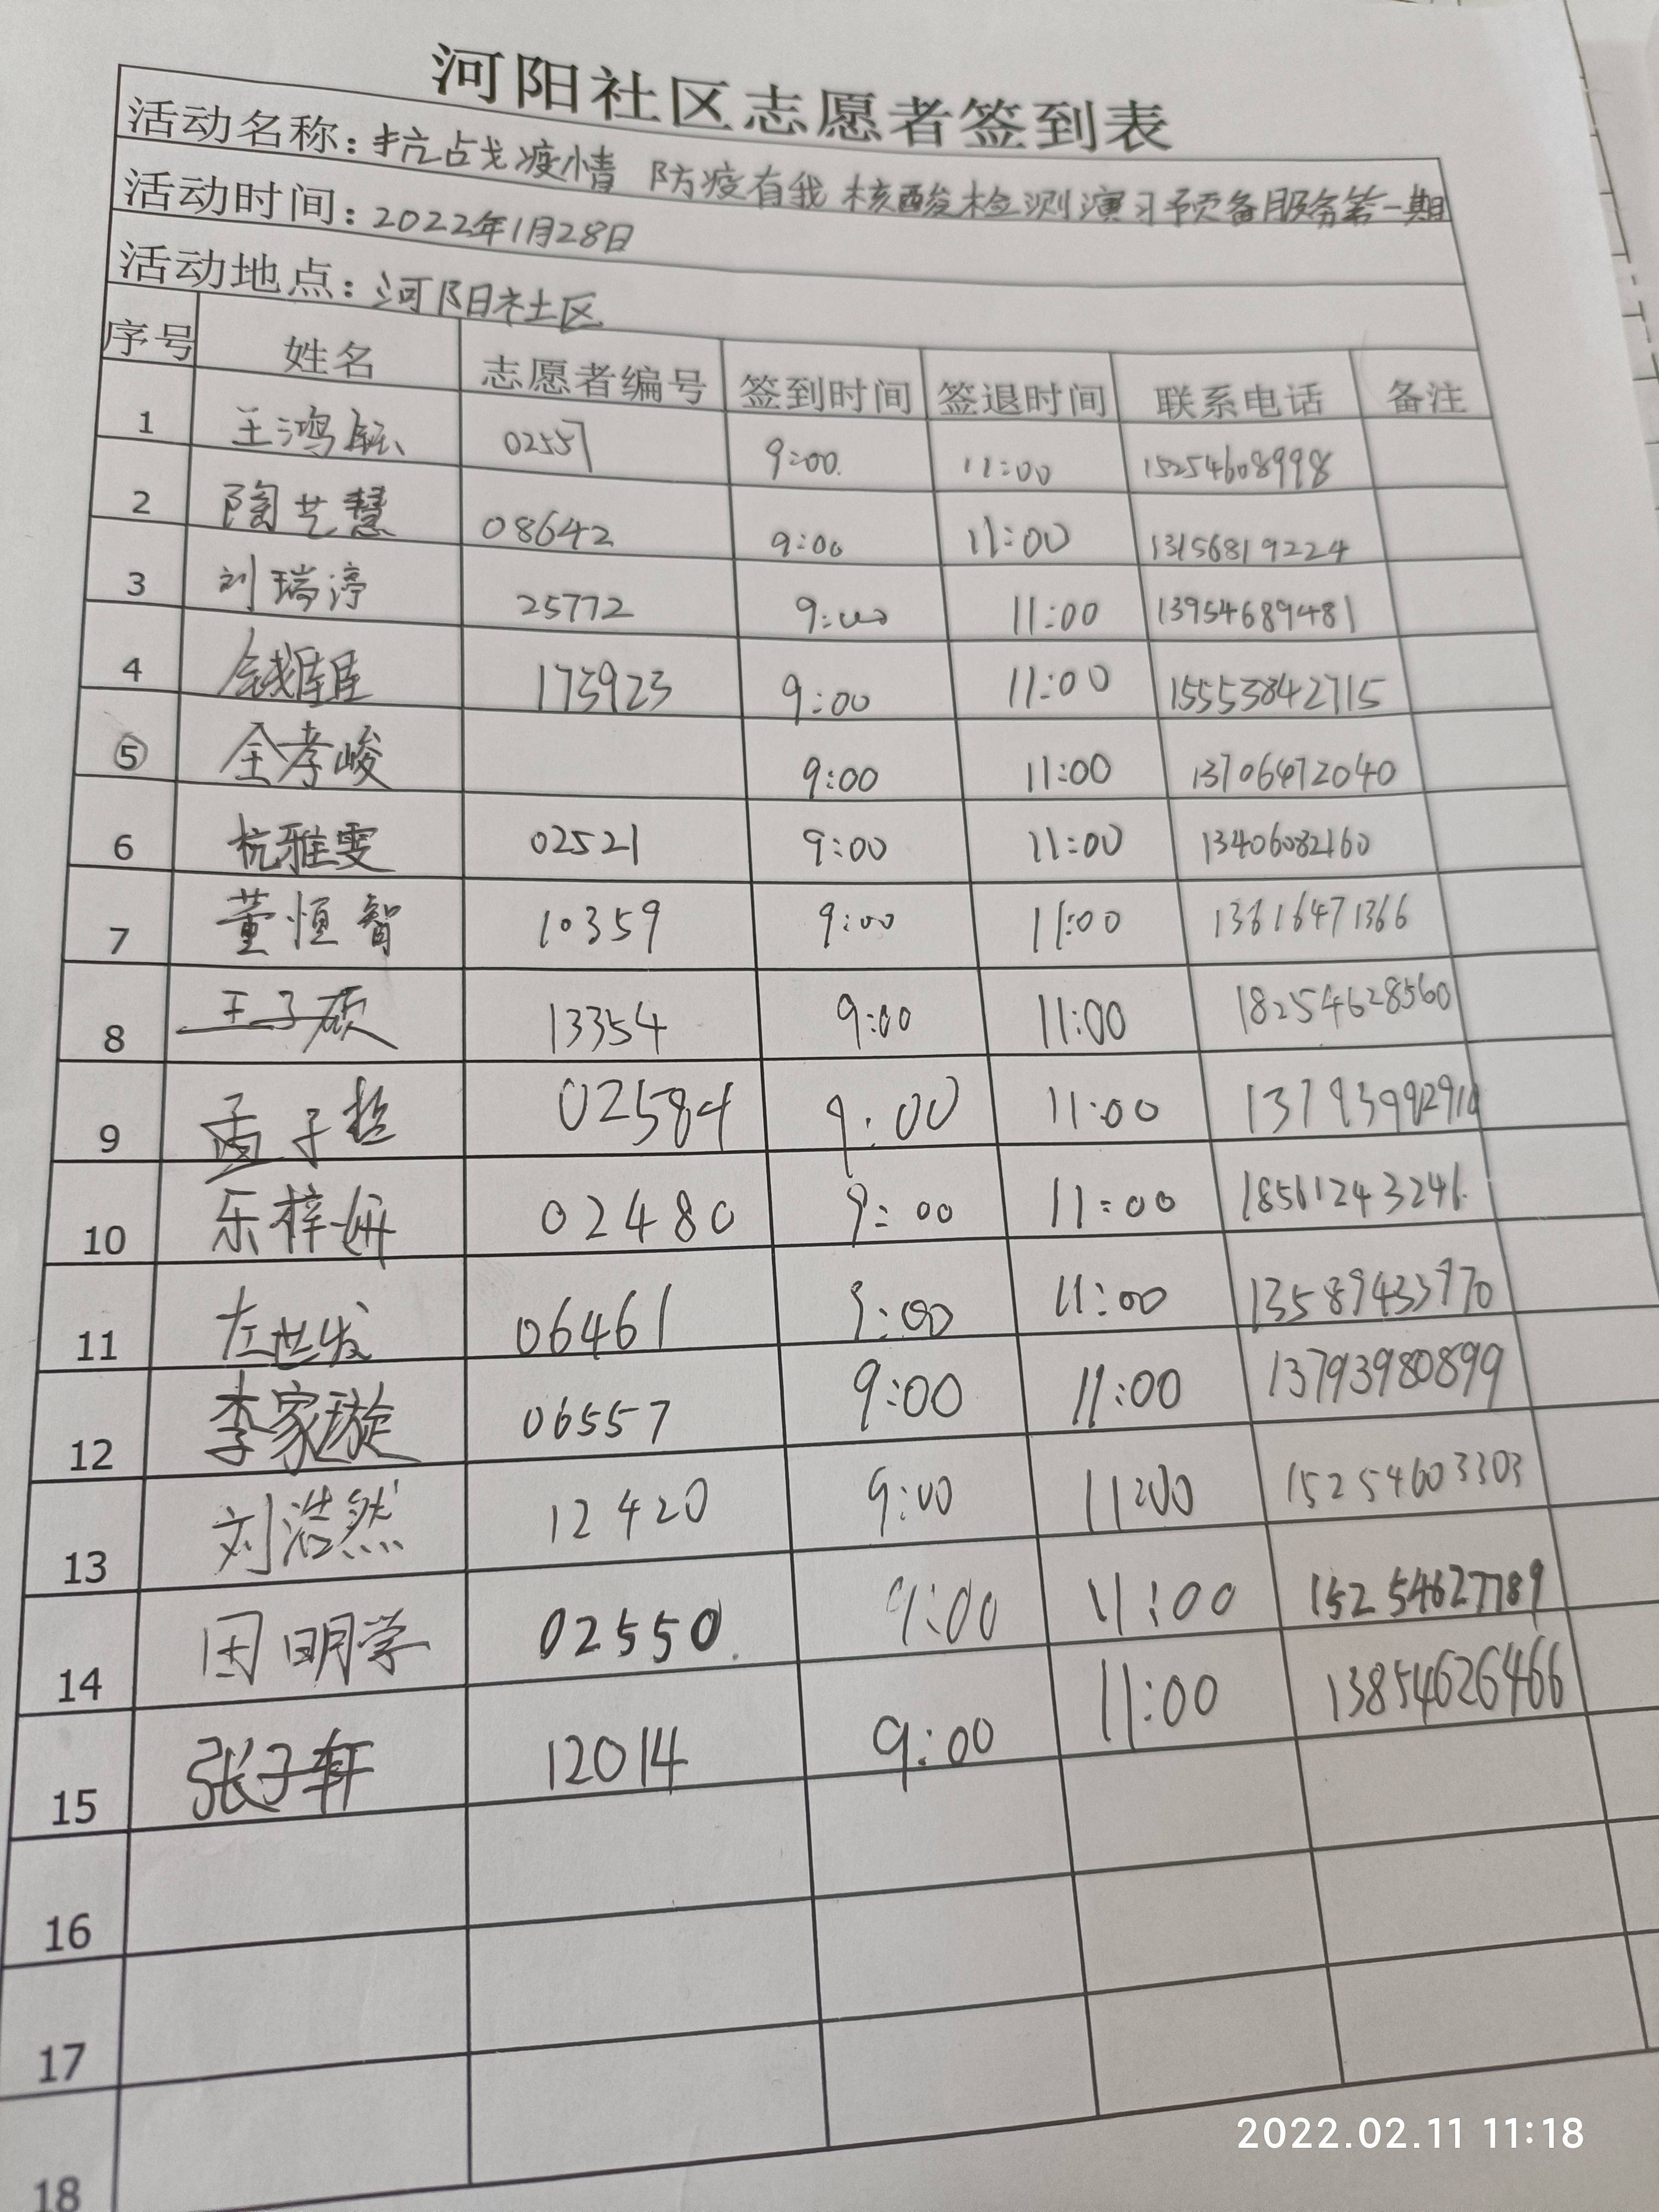 河阳社区志愿者签到表
活动名称：抗战疫情 防疫有我 核酸检测演习预备服务第一期
活动时间：2022年1月28日
活动地点：河阳社区
序号 姓名 志愿者编号 签到时间 签退时间 联系电话 备注
1 王鸿 02557 9:00 11:00 15254608998
2 陶艺慧 08642 9:00 11:00 13156819224
3 刘瑞渟 25772 9:00 11:00 13954689481
4 175923 9:00 11:00 15553842715
5 全孝峻 9:00 11:00 13706472040
6 杭雅雯 02521 9:00 11:00 13406082160
7 董恒智 10359 9:00 11:00 13616471366
8 王子硕 13354 9:00 11:00 18254628560
9 孟子哲 02584 9:00 11:00
10 乐梓妍 02480 9:00 11:00 18561243246
11 左世发 06461 9:00 11:00 13589433970
12 李家璇 06557 9:00 11:00 13793980899
13 刘浩然 12420 9:00 11:00 15254603303
14 田明学 02550 9:00 11:00 15254627789
15 张子轩 12014 9:00 11:00 13854626466
16
17
18
2022.02.11 11:18